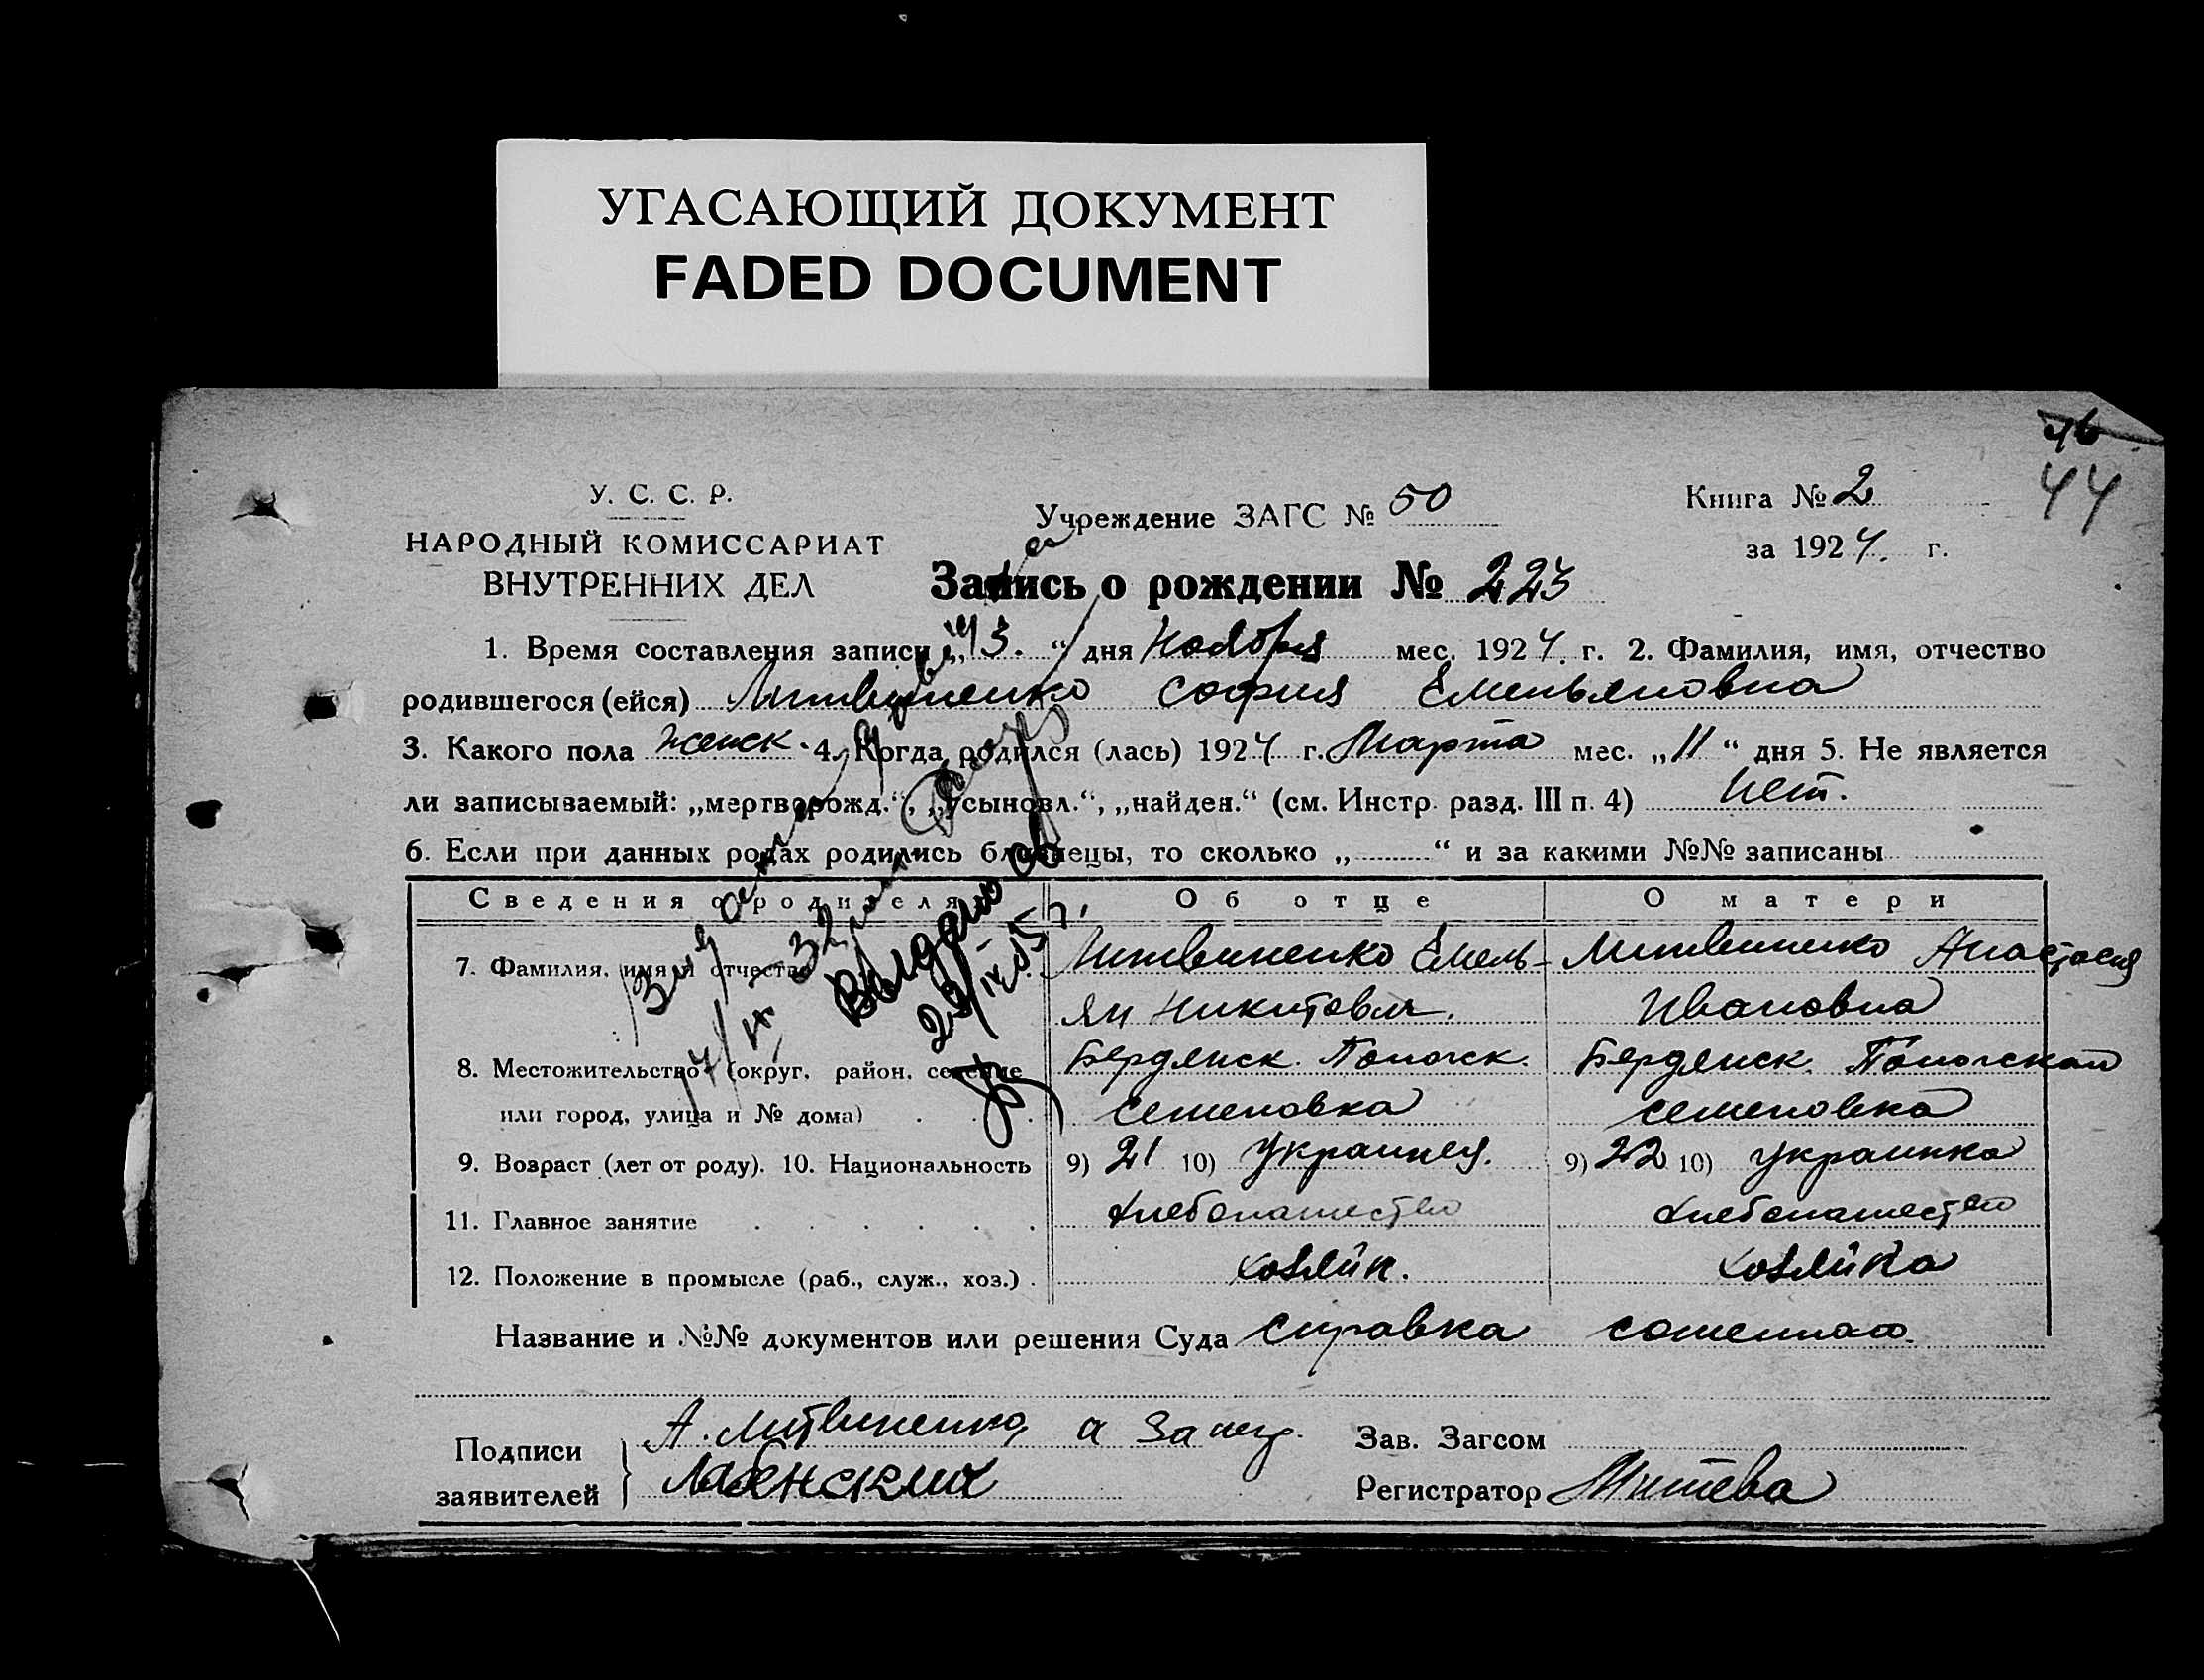 УГАСАЮЩИЙ ДОКУМЕНТ
FADED DOCUMENT
44
У. С. С. Р.
НАРОДНЫЙ КОМИССАРИАТ
ВНУТРЕННИХ ДЕЛ
Учреждение ЗАГС № 50
Книга № 2
за 1924 г.
Запись о рождении № 223
1. Время составления записи „13.“ дня Ноября мес. 1924. г. 2. Фамилия, имя, отчество
родившегося (ейся) Литвиненко София Емельяновна
3. Какого пола женск. 4. Когда родился (лась) 1924 г. Марта мес. „11“ дня 5. Не является
ли записываемый: „мертворожд.“, „усыновл.“, „найден.“ (см. Инстр. разд. III п. 4) нет.
6. Если при данных родах родились близнецы, то сколько „..........“ и за какими №№ записаны
Сведения о родителях Об отце О матери
7. Фамилия, имя и отчество Литвиненко Емель- Литвиненко Анастасия
ян Никитович. Ивановна
8. Местожительство (округ, район, селение Бердянск. Бердянск.
или город, улица и № дома) Семеновка Семеновка
9. Возраст (лет от роду). 10. Национальность 9) 21 10) Украинец. 9) 22 10) украинка
11. Главное занятие хлебопашество хлебопашество
12. Положение в промысле (раб., служ., хоз.) хозяйн. хозяйка
Название и №№ документов или решения Суда справка
Подписи
заявителей
А. Литвиненко, а за негр.
Зав. Загсом
Регистратор Митева
Выдано